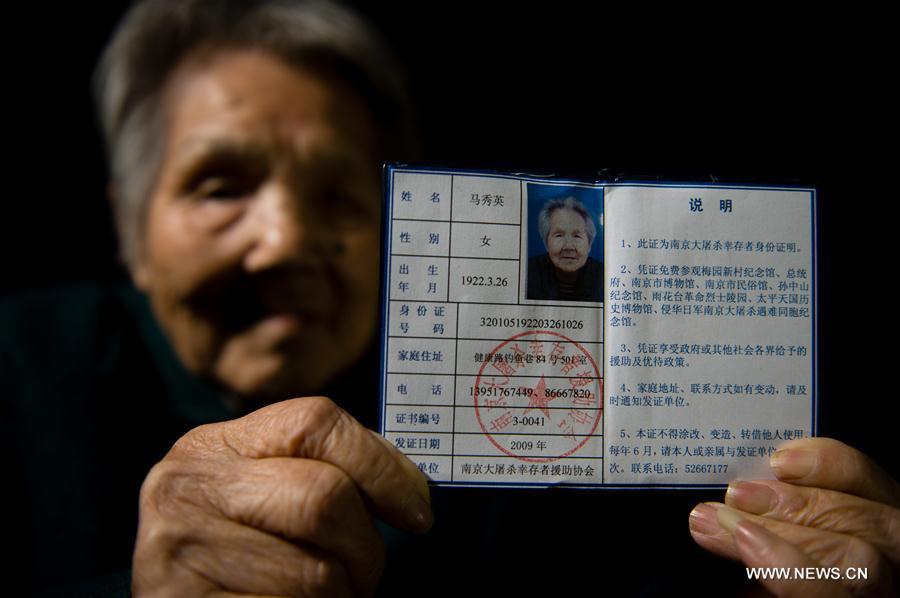 姓 名 马秀英
性 别 女
出 生
年 月 1922.3.26
身 份 证
号 码 320105192203261026
家庭住址 健康路钓鱼巷 84 号 501 室
电 话 13951767449、86667820
证书编号 3-0041
发证日期 2009 年
单位 南京大屠杀幸存者援助协会
说 明
1、此证为南京大屠杀幸存者身份证明。
2、凭证免费参观梅园新村纪念馆、总统
府、南京市博物馆、南京市民俗馆、孙中山
纪念馆、雨花台革命烈士陵园、太平天国历
史博物馆、侵华日军南京大屠杀遇难同胞纪
念馆。
3、凭证享受政府或其他社会各界给予的
援助及优待政策。
4、家庭地址、联系方式如有变动，请及
时通知发证单位。
5、本证不得涂改、变造、转借他人使用
每年 6 月，请本人或亲属与发证单位
次。联系电话：52667177
WWW.NEWS.CN